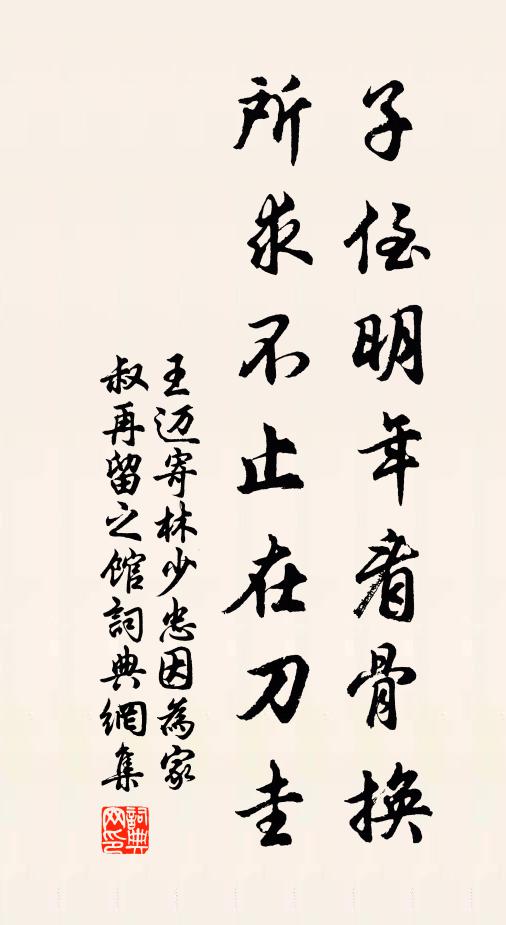 子侄明年看骨換
所求不止在刀圭
王迈寄林少忠因為家
叔再留之館詞典網集
詞典网印